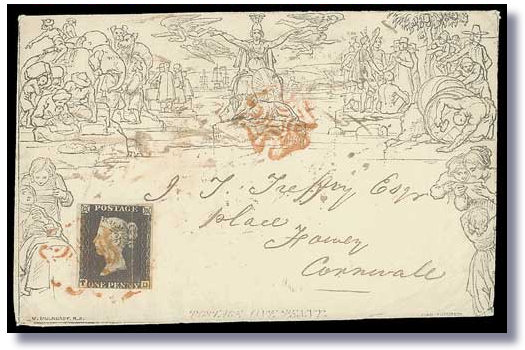 J. T. Treffry Esqr
Place
Fowey
Cornwall
POSTAGE
ONE PENNY
W. MULREADY, R.A.
JOHN THOMPSON